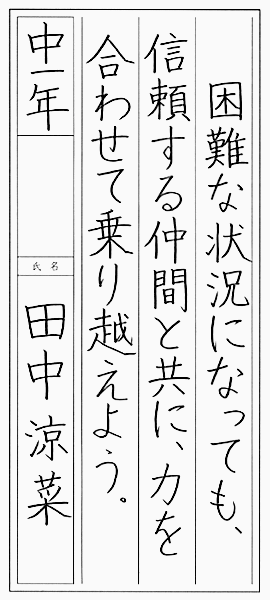 困難な状況になっても、
信頼する仲間と共に、力を
合わせて乗り越えよう。
中一年
氏名
田中涼菜